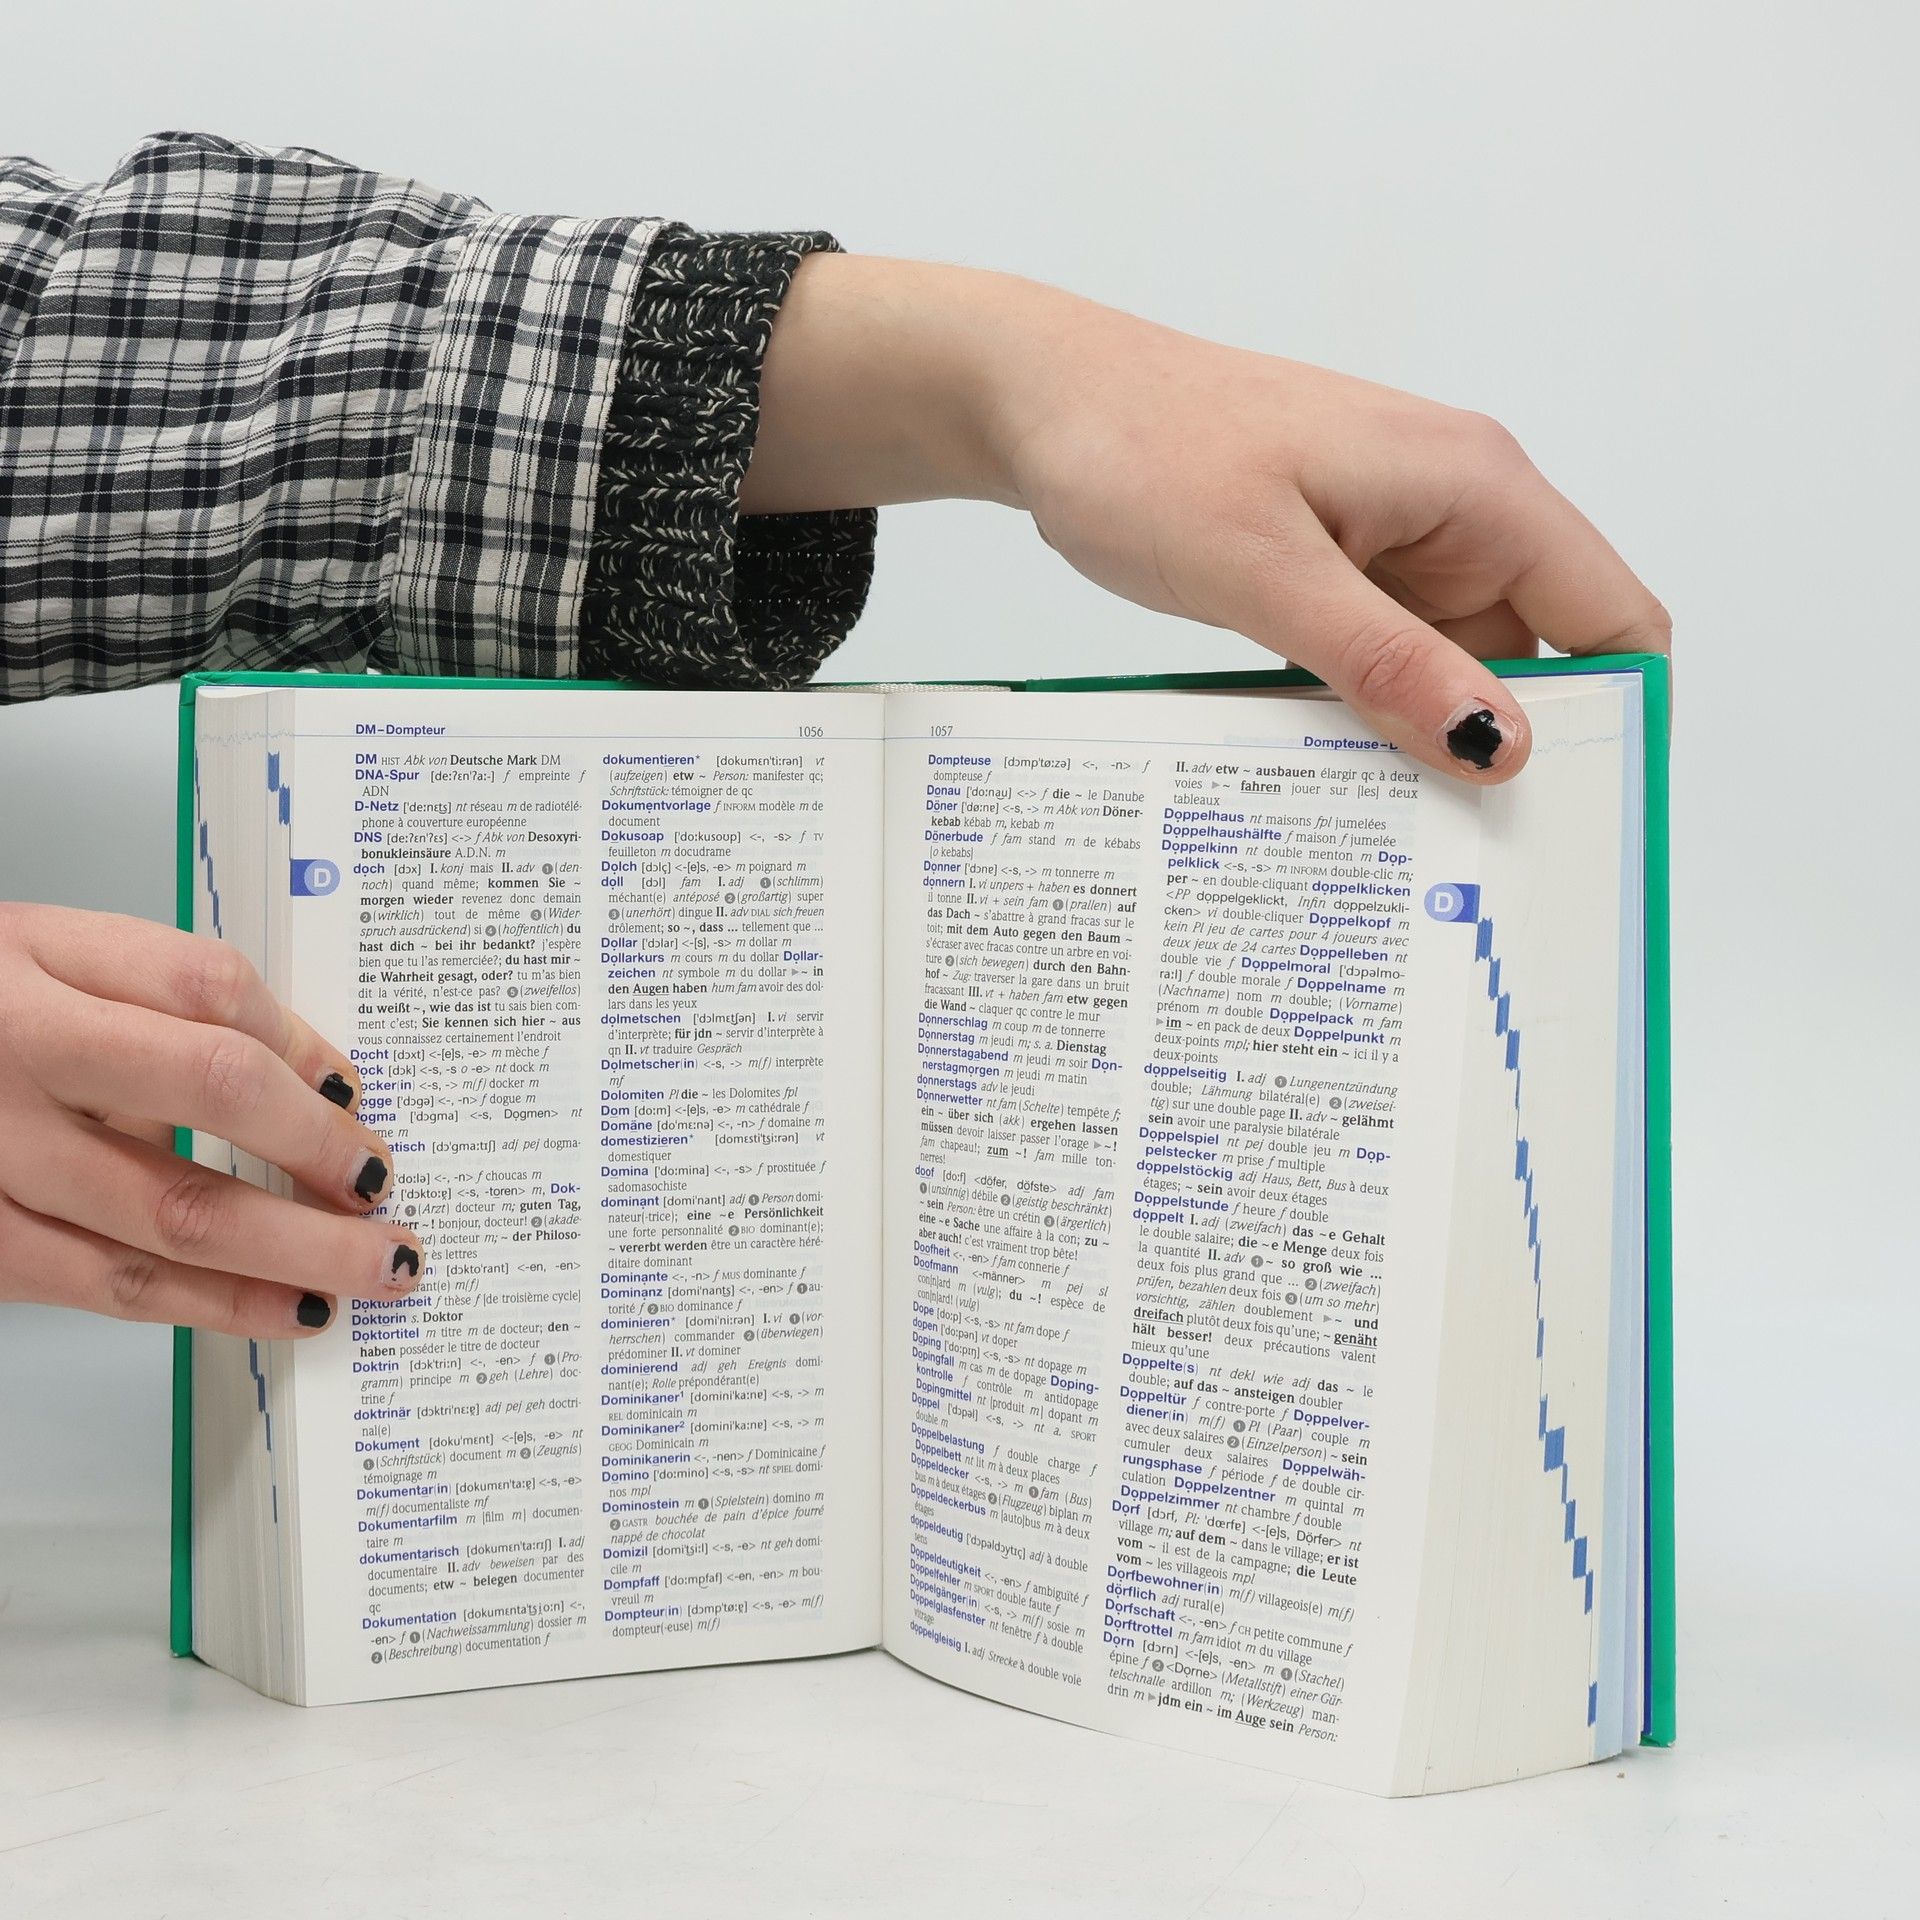 DM–Dompteur 1056
DM HIST Abk von Deutsche Mark DM
DNA-Spur [deːʔɛnˈʔaː-] f empreinte f
ADN
D-Netz [ˈdeːnɛts] nt réseau m de radiotélé-
phone à couverture européenne
DNS [deːʔɛnˈʔɛs] <-> f Abk von Desoxyri-
bonukleinsäure A.D.N. m
doch [dɔx] I. konj mais II. adv ❶ (den-
noch) quand même; kommen Sie ~
morgen wieder revenez donc demain
❷ (wirklich) tout de même ❸ (Wider-
spruch ausdrückend) si ❹ (hoffentlich) du
hast dich ~ bei ihr bedankt? j'espère
bien que tu l'as remerciée?; du hast mir ~
die Wahrheit gesagt, oder? tu m'as bien
dit la vérité, n'est-ce pas? ❺ (zweifellos)
du weißt ~, wie das ist tu sais bien com-
ment c'est; Sie kennen sich hier ~ aus
vous connaissez certainement l'endroit
Docht [dɔxt] <-[e]s, -e> m mèche f
Dock [dɔk] <-s, -s o -e> nt dock m
ocker(in) <-s, -> m(f) docker m
ogge [ˈdɔgə] <-, -n> f dogue m
ogma [ˈdɔgma] <-s, Dogmen> nt
me m
atisch [dɔˈgmaːtɪʃ] adj pej dogma-
[ˈdoːlə] <-, -n> f choucas m
r [ˈdɔktoːɐ] <-s, -toren> m, Dok-
orin f ❶ (Arzt) docteur m; guten Tag,
Herr ~! bonjour, docteur! ❷ (akade-
ad) docteur m; ~ der Philoso-
r ès lettres
in) [dɔktoˈrant] <-en, -en>
rant(e) m(f)
Doktorarbeit f thèse f [de troisième cycle]
Doktorin s. Doktor
Doktortitel m titre m de docteur; den ~
haben posséder le titre de docteur
Doktrin [dɔkˈtriːn] <-, -en> f ❶ (Pro-
gramm) principe m ❷ geh (Lehre) doc-
trine f
doktrinär [dɔktriˈnɛːɐ] adj pej geh doctri-
nal(e)
Dokument [dokuˈmɛnt] <-[e]s, -e> nt
❶ (Schriftstück) document m ❷ (Zeugnis)
témoignage m
Dokumentar(in) [dokumɛnˈtaːɐ] <-s, -e>
m(f) documentaliste mf
Dokumentarfilm m [film m] documen-
taire m
dokumentarisch [dokumɛnˈtaːrɪʃ] I. adj
documentaire II. adv beweisen par des
documents; etw ~ belegen documenter
qc
Dokumentation [dokumɛntaˈtsi̯oːn] <-,
-en> f ❶ (Nachweissammlung) dossier m
❷ (Beschreibung) documentation f
D
dokumentieren* [dokumɛnˈtiːrən] vt
(aufzeigen) etw ~ Person: manifester qc;
Schriftstück: témoigner de qc
Dokumentvorlage f INFORM modèle m de
document
Dokusoap [ˈdoːkusoʊp] <-, -s> f TV
feuilleton m docudrame
Dolch [dɔlç] <-[e]s, -e> m poignard m
doll [dɔl] fam I. adj ❶ (schlimm)
méchant(e) antéposé ❷ (großartig) super
❸ (unerhört) dingue II. adv DIAL sich freuen
drôlement; so ~, dass ... tellement que ...
Dollar [ˈdɔlar] <-[s], -s> m dollar m
Dollarkurs m cours m du dollar Dollar-
zeichen nt symbole m du dollar ▸ ~ in
den Augen haben hum fam avoir des dol-
lars dans les yeux
dolmetschen [ˈdɔlmɛtʃən] I. vi servir
d'interprète; für jdn ~ servir d'interprète à
qn II. vt traduire Gespräch
Dolmetscher(in) <-s, -> m(f) interprète
mf
Dolomiten Pl die ~ les Dolomites fpl
Dom [doːm] <-[e]s, -e> m cathédrale f
Domäne [doˈmɛːnə] <-, -n> f domaine m
domestizieren* [domɛstiˈtsiːrən] vt
domestiquer
Domina [ˈdoːmina] <-, -s> f prostituée f
sadomasochiste
dominant [domiˈnant] adj ❶ Person domi-
nateur(-trice); eine ~e Persönlichkeit
une forte personnalité ❷ BIO dominant(e);
~ vererbt werden être un caractère héré-
ditaire dominant
Dominante <-, -n> f MUS dominante f
Dominanz [domiˈnants] <-, -en> f ❶ au-
torité f ❷ BIO dominance f
dominieren* [domiˈniːrən] I. vi ❶ (vor-
herrschen) commander ❷ (überwiegen)
prédominer II. vt dominer
dominierend adj geh Ereignis domi-
nant(e); Rolle prépondérant(e)
Dominikaner¹ [dominiˈkaːnɐ] <-s, -> m
REL dominicain m
Dominikaner² [dominiˈkaːnɐ] <-s, -> m
GEOG Dominicain m
Dominikanerin <-, -nen> f Dominicaine f
Domino [ˈdoːmino] <-s, -s> nt SPIEL domi-
nos mpl
Dominostein m ❶ (Spielstein) domino m
❷ GASTR bouchée de pain d'épice fourré
nappé de chocolat
Domizil [domiˈtsiːl] <-s, -e> nt geh domi-
cile m
Dompfaff [ˈdoːmpfaf] <-en, -en> m bou-
vreuil m
Dompteur(in) [dɔmpˈtøːɐ] <-s, -e> m(f)
dompteur(-euse) m(f)
1057 Dompteuse–D
Dompteuse [dɔmpˈtøːzə] <-, -n> f
dompteuse f
Donau [ˈdoːnau] <-> f die ~ le Danube
Döner [ˈdøːnɐ] <-s, -> m Abk von Döner-
kebab kébab m, kebab m
Dönerbude f fam stand m de kébabs
[o kebabs]
Donner [ˈdɔnɐ] <-s, -> m tonnerre m
donnern I. vi unpers + haben es donnert
il tonne II. vi + sein fam ❶ (prallen) auf
das Dach ~ s'abattre à grand fracas sur le
toit; mit dem Auto gegen den Baum ~
s'écraser avec fracas contre un arbre en voi-
ture ❷ (sich bewegen) durch den Bahn-
hof ~ Zug: traverser la gare dans un bruit
fracassant III. vt + haben fam etw gegen
die Wand ~ claquer qc contre le mur
Donnerschlag m coup m de tonnerre
Donnerstag m jeudi m; s. a. Dienstag
Donnerstagabend m jeudi m soir Don-
nerstagmorgen m jeudi m matin
donnerstags adv le jeudi
Donnerwetter nt fam (Schelte) tempête f;
ein ~ über sich (akk) ergehen lassen
müssen devoir laisser passer l'orage ▸ ~!
fam chapeau!; zum ~! fam mille ton-
nerres!
doof [doːf] <döfer, döfste> adj fam
❶ (unsinnig) débile ❷ (geistig beschränkt)
~ sein Person: être un crétin ❸ (ärgerlich)
eine ~e Sache une affaire à la con; zu ~
aber auch! c'est vraiment trop bête!
Doofheit <-, -en> f fam connerie f
Doofmann <-männer> m pej sl
con[n]ard m (vulg); du ~! espèce de
con[n]ard! (vulg)
Dope [doːp] <-s, -s> nt fam dope f
dopen [ˈdoːpən] vt doper
Doping [ˈdoːpɪŋ] <-s, -s> nt dopage m
Dopingfall m cas m de dopage Doping-
kontrolle f contrôle m antidopage
Dopingmittel nt [produit m] dopant m
Doppel [ˈdɔpəl] <-s, -> nt a. SPORT
double m
Doppelbelastung f double charge f
Doppelbett nt lit m à deux places
Doppeldecker <-s, -> m ❶ fam (Bus)
bus m à deux étages ❷ (Flugzeug) biplan m
Doppeldeckerbus m [auto]bus m à deux
étages
doppeldeutig [ˈdɔpəldɔytɪç] adj à double
sens
Doppeldeutigkeit <-, -en> f ambiguïté f
Doppelfehler m SPORT double faute f
Doppelgänger(in) <-s, -> m(f) sosie m
Doppelglasfenster nt fenêtre f à double
vitrage
doppelgleisig I. adj Strecke à double voie
II. adv etw ~ ausbauen élargir qc à deux
voies ▸ ~ fahren jouer sur [les] deux
tableaux
Doppelhaus nt maisons fpl jumelées
Doppelhaushälfte f maison f jumelée
Doppelkinn nt double menton m Dop-
pelklick <-s, -s> m INFORM double-clic m;
per ~ en double-cliquant doppelklicken
<PP doppelgeklickt, Infin doppelzukli-
cken> vi double-cliquer Doppelkopf m
kein Pl jeu de cartes pour 4 joueurs avec
deux jeux de 24 cartes Doppelleben nt
double vie f Doppelmoral [ˈdɔpəlmo-
raːl] f double morale f Doppelname m
(Nachname) nom m double; (Vorname)
prénom m double Doppelpack m fam
▸ im ~ en pack de deux Doppelpunkt m
deux-points mpl; hier steht ein ~ ici il y a
deux-points
doppelseitig I. adj ❶ Lungenentzündung
double; Lähmung bilatéral(e) ❷ (zweisei-
tig) sur une double page II. adv ~ gelähmt
sein avoir une paralysie bilatérale
Doppelspiel nt pej double jeu m Dop-
pelstecker m prise f multiple
doppelstöckig adj Haus, Bett, Bus à deux
étages; ~ sein avoir deux étages
Doppelstunde f heure f double
doppelt I. adj (zweifach) das ~e Gehalt
le double salaire; die ~e Menge deux fois
la quantité II. adv ❶ ~ so groß wie ...
deux fois plus grand que ... ❷ (zweifach)
prüfen, bezahlen deux fois ❸ (um so mehr)
vorsichtig, zählen doublement ▸ ~ und
dreifach plutôt deux fois qu'une; ~ genäht
hält besser! deux précautions valent
mieux qu'une
Doppelte(s) nt dekl wie adj das ~ le
double; auf das ~ ansteigen doubler
Doppeltür f contre-porte f Doppelver-
diener(in) m(f) ❶ Pl (Paar) couple m
avec deux salaires ❷ (Einzelperson) ~ sein
cumuler deux salaires Doppelwäh-
rungsphase f période f de double cir-
culation Doppelzentner m quintal m
Doppelzimmer nt chambre f double
Dorf [dɔrf, Pl: ˈdœrfe] <-[e]s, Dörfer> nt
village m; auf dem ~ dans le village; er ist
vom ~ il est de la campagne; die Leute
vom ~ les villageois mpl
Dorfbewohner(in) m(f) villageois(e) m(f)
dörflich adj rural(e)
Dorfschaft <-, -en> f CH petite commune f
Dorftrottel m fam idiot m du village
Dorn [dɔrn] <-[e]s, -en> m ❶ (Stachel)
épine f ❷ <Dorne> (Metallstift) einer Gür-
telschnalle ardillon m; (Werkzeug) man-
drin m ▸ jdm ein ~ im Auge sein Person:
D